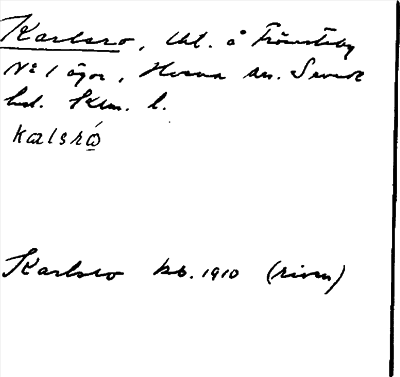 Karlsro, lht. å Frönsteby
No 1 ägor, Hvena sn. Sevede
hd. Klm. l.
kalsrώ
Karlsro kb. 1910 (riven)